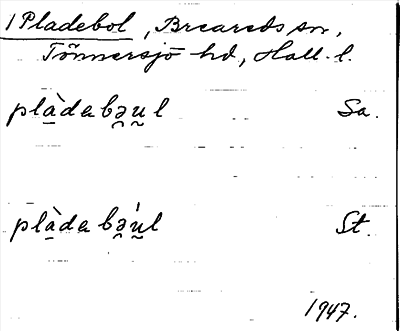 1 Pladebol, Breareds sn,
Tönnersjö hd, Hall. l.
plà̱dabə̯u̮l Sa.
plà̱dabə̯ú̮l St.
1947.